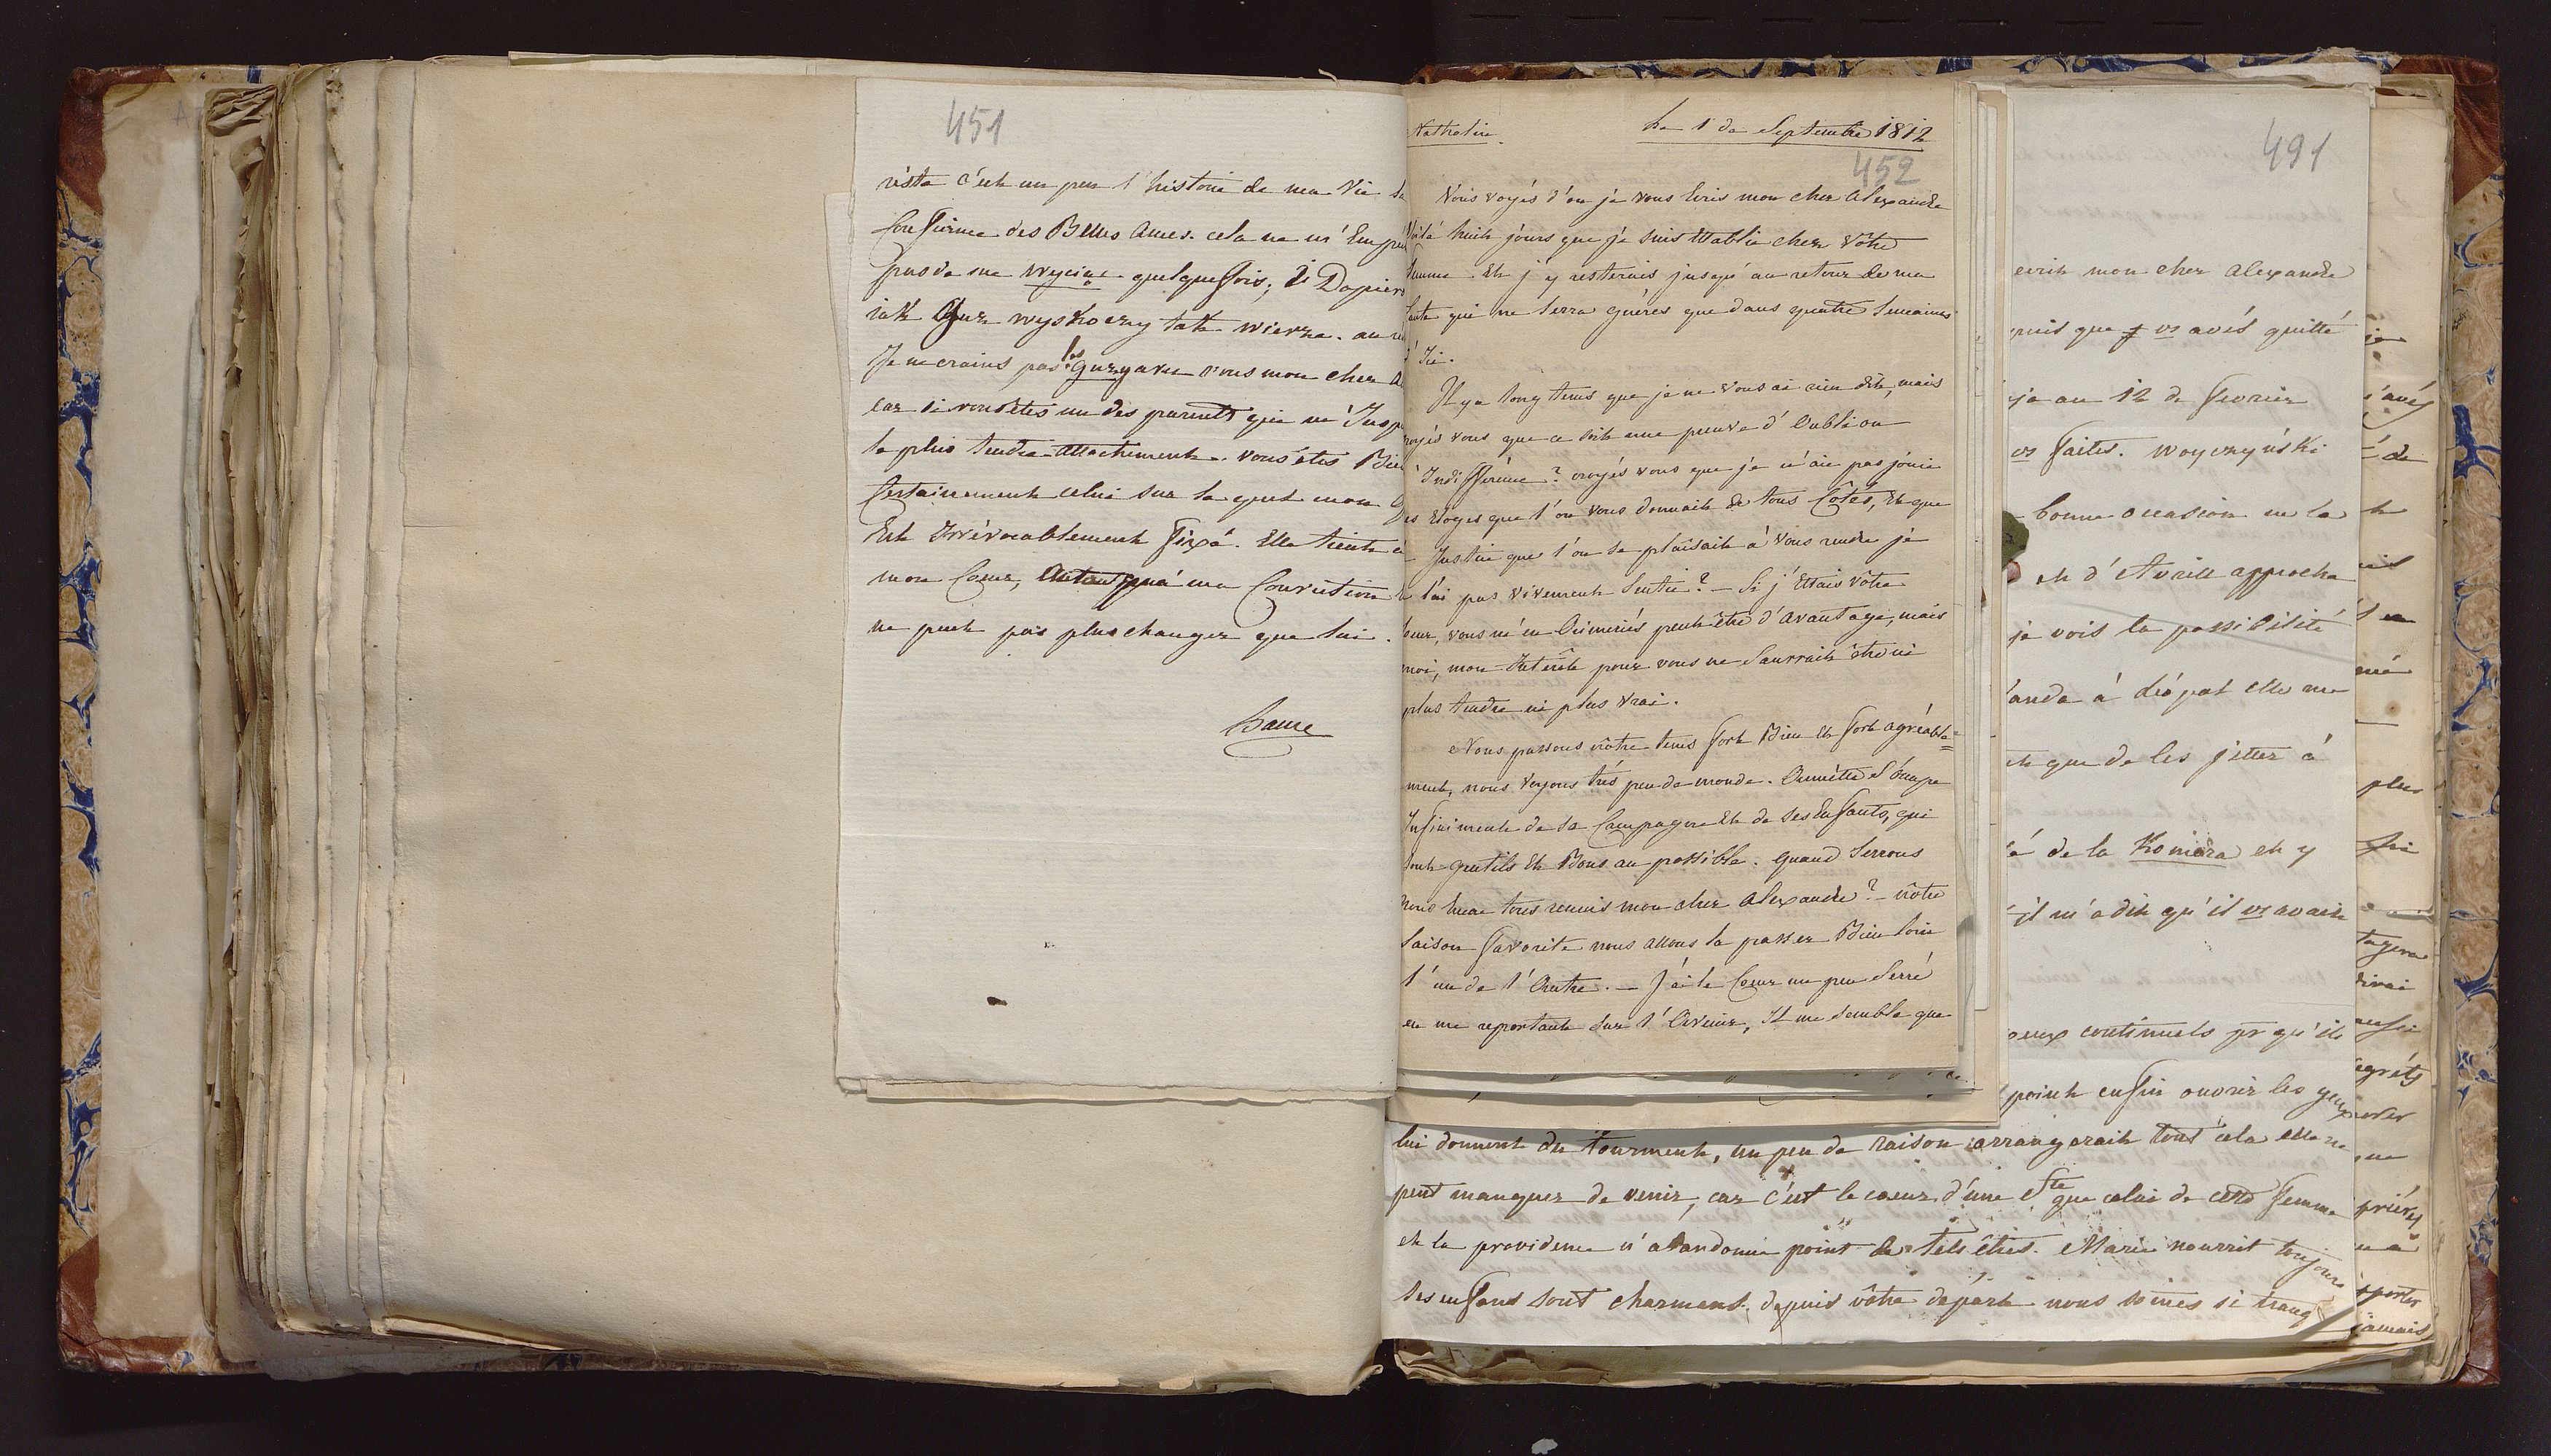 451
reste c'est un peu l'histoire de ma Vie
Confiance des Belles Ames. cela ne m'Emp
pas de me wyciąć quelquefois; i Dopier
iak Guz wyskoczy tak wierzę. au
Je ne crains pas les guzy avec vous mon cher A
car si vous êtes un des parents qui m'Insp
le plus tendre attachement. vous êtes Bien
Certainement celui sur lequel mon
Est Irrévocablement fixé. Elle tient à
mon Coeur, Autant qu'a ma Conviction
ne peut pas plus changer que lui.
452
Nathaline.
Le 1 de Septembre 1812
Vous voyés d'ou je vous Ecris mon cher Alexandre
Voilà huit jours que je suis Etablie chez Vôtre
femme. Et j'y resterais jusqu'au retour de ma
tante qui ne Serra guères que dans quatre Semaines
d'Ici.
Il y a longtems que je ne vous ai rien dit, mais
croyés vous que ce soit une preuve d'Oubli ou
d'Indifférence? croyés vous que je n'aie pas jouie
Des Eloges que l'on vous donnait de tous Côtés, Et que
Justice que l'on se plaisait à vous rendre je
l'ai pas vivement Sentie? – Si j'Ettais Vôtre
Soeur, vous m'en Aimeriés peut être d'avantage, mais
moi, mon Intérêt pour vous ne Saurrait être ni
plus tendre ni plus vrai.
Nous passons nôtre tems fort Bien Et fort agréable=
ment, nous voyons très peu de monde. Annette S'occupe
Infiniment de sa Campagne Et de ses Enfants, qui
sont gentils Et Bons au possible. quand Serrons
nous tous reunis mon cher Alexandre? – nôtre
Saison favorite nous allons la passer Bien loin
l'un de l'Autre. – J'ai le Coeur un peu Serré
en me reportant sur l'Avenir, Il me semble que
491
ecrit mon cher Alexandre
puis que vs avés quitté
au 12 de fevrier
vs faites. Woyczyński
bonne occasion
et d'Avrill approche
je vois la possibilité
à départ elle me
que de les jetter à
de la Komora et y
il m'a dit qu'il vs avait
continuels pr qu'il
point enfin ouvrir les yeux
lui donnent du tourment, un peu de raison arrangerait tout cela elle ne
peut manquer de venir, car c'est le coeur d'une Ste que celui de cette femme
et la providence n'abandonne point de tels êtres. Marie nourrit toujours
ses enfans sont charmans. depuis vôtre depart nous somes si tranq
plus
jamais